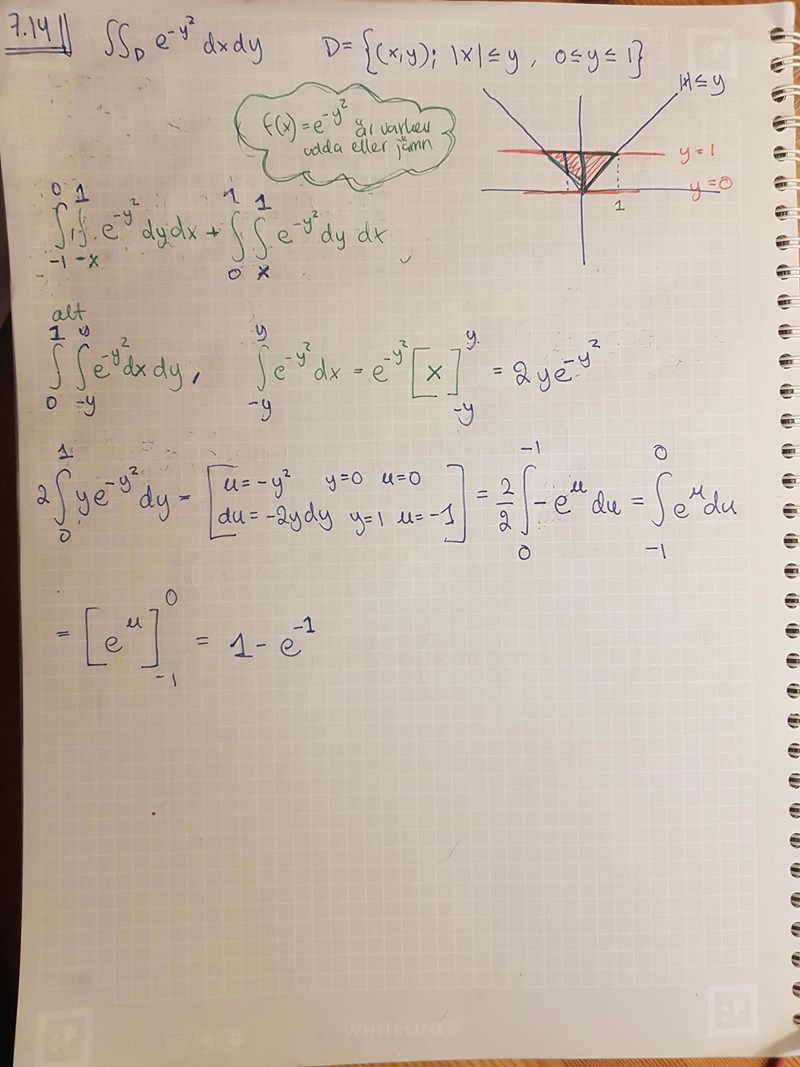 7.14 ∬_D e^{-y²} dxdy D = {(x,y); |x| ≤ y, 0 ≤ y ≤ 1}
|x| ≤ y
f(x) = e^{-y²} är varken
udda eller jämn
y = 1
y = 0
1
∫_{-1}^{0} ∫_{-x}^{1} e^{-y²} dydx + ∫_{0}^{1} ∫_{x}^{1} e^{-y²} dy dx
alt
∫_{0}^{1} ∫_{-y}^{y} e^{-y²} dx dy, ∫_{-y}^{y} e^{-y²} dx = e^{-y²} [x]_{-y}^{y} = 2ye^{-y²}
2 ∫_{0}^{1} ye^{-y²} dy = [u = -y² y=0 u=0
du = -2ydy y=1 u=-1] = 2/2 ∫_{0}^{-1} -e^{u} du = ∫_{-1}^{0} e^{u} du
= [e^{u}]_{-1}^{0} = 1 - e^{-1}
WHITELINES